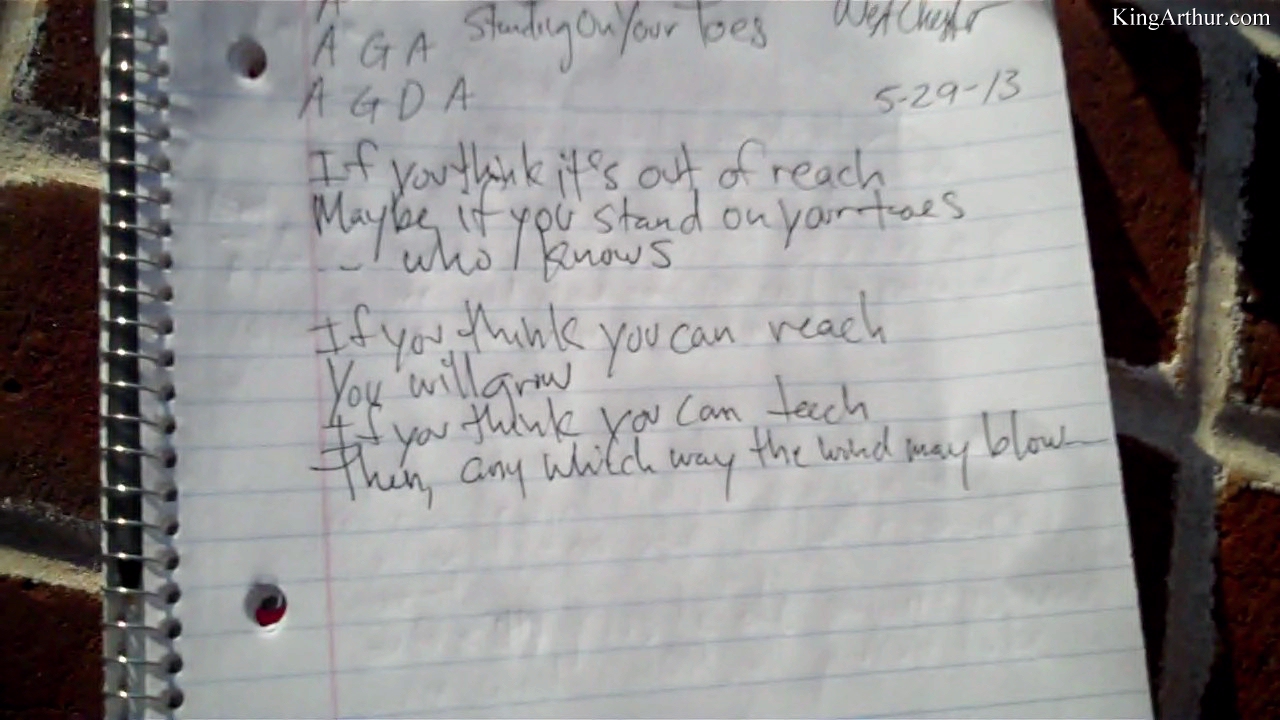 KingArthur.com
A
A G A Standing On Your Toes West Chester
A G D A 5-29-13
If you think it's out of reach
Maybe if you stand on your toes
-- who knows
If you think you can reach
You will grow
If you think you can teach
Then, any which way the wind may blow